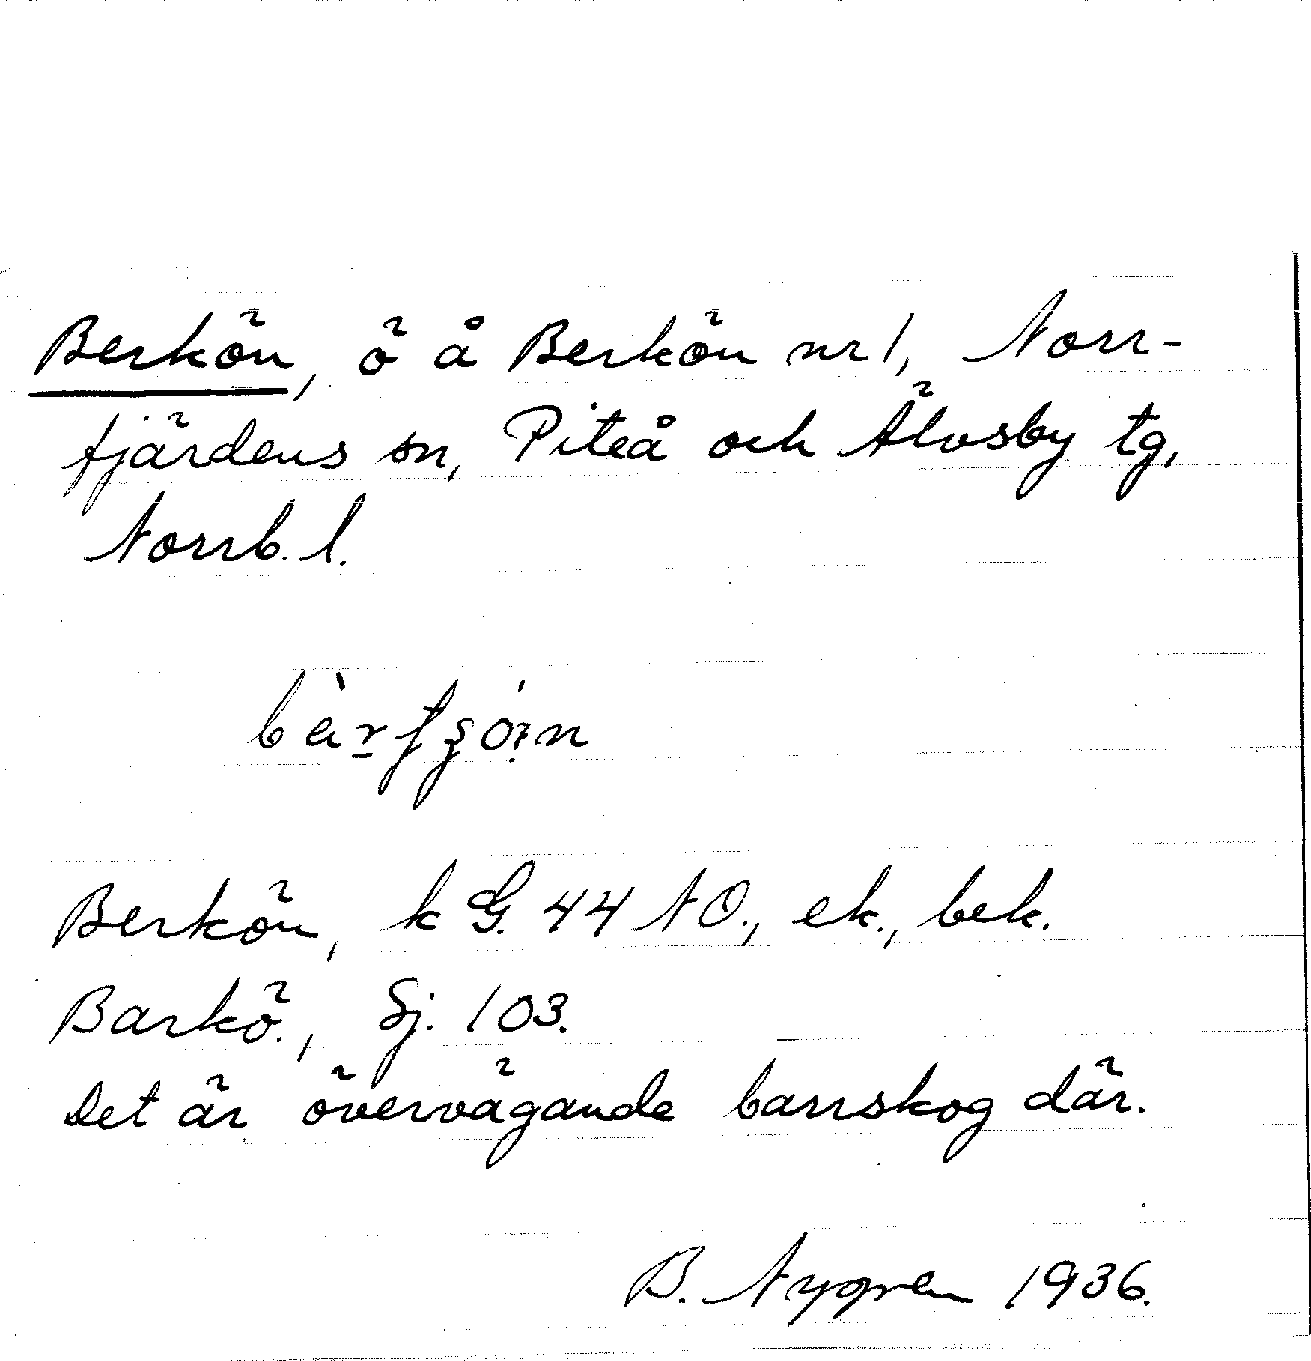 Berkön, ö å Berkön nr 1, Norr-
fjärdens sn, Piteå och Älvsby tg,
Norrb. l.
Berkön, k G. 44 NO., ek., bek.
Barkö., Sj. 103.
Det är övervägande barrskog där.
B. Nygren 1936.